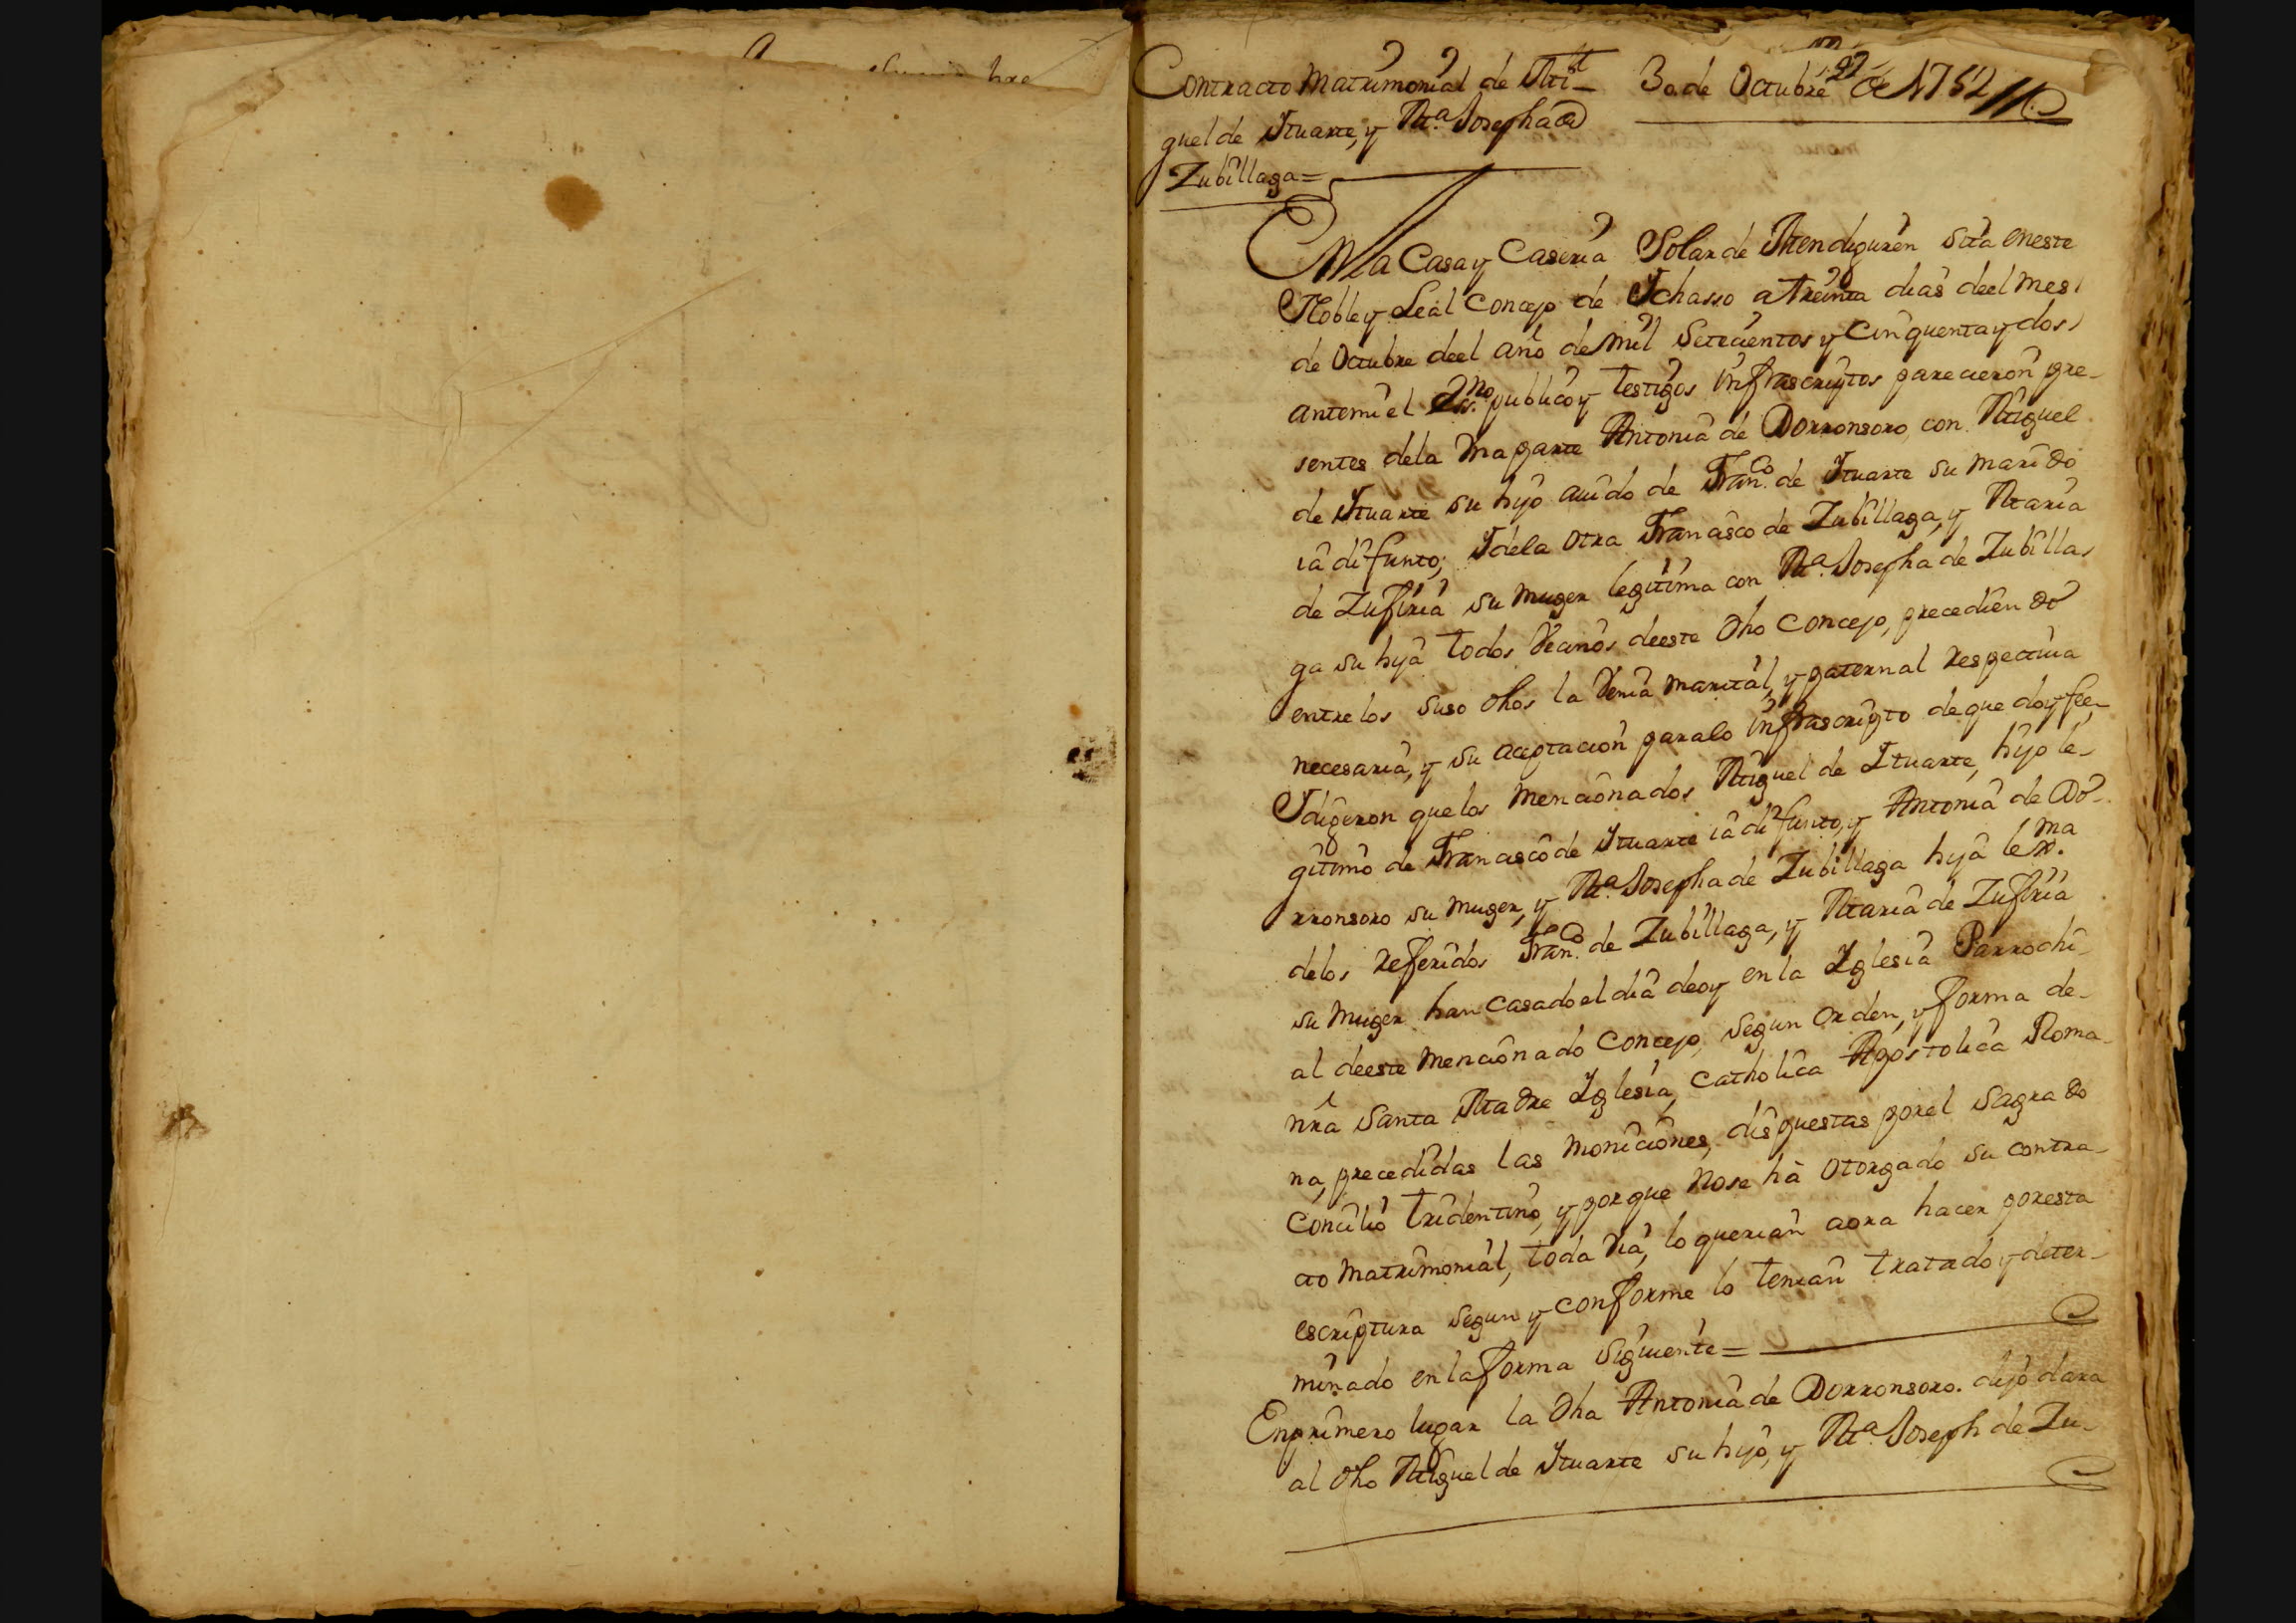 Contracto Matrimonial de Mi-
guel de Ituarte, y Ma. Josepha de
Zubillaga=
30 de Octubre de 1752
En la Casa y Caseria Solar de Mendiguren sita eneste
Noble y Leal Concejo de Ichasso a treinta dias deel mes
de Octubre deel año de mil Setecientos y Cinquenta y dos
antemi el Essno. publico y testigos infrascriptos parecieron pre-
sentes dela Una parte Antonia de Dorronsoro, con Miguel
de Ituarte su hijo auido de Franco. de Ituarte su marido
ia difunto; I dela otra Francisco de Zubillaga, y Maria
de Zufiria su muger legitima con Ma. Josepha de Zubilla
ga su hija todos Vecinos deeste dho Concejo, precediendo
entre los suso dhos la Venia marital, y paternal respectiua
necesaria, y su aceptacion paralo infrascripto de que doy fee,
I digeron que los mencionados Miguel de Ituarte, hijo le-
gitimo de Francisco de Ituarte ia difunto, y Antonia de Do-
rronsoro su muger, y Ma. Josepha de Zubillaga hija lexma.
delos referidos Franco. de Zubillaga, y Maria de Zufiria
su muger han Casado el dia deoy en la Iglesia Parrochi-
al deeste mencionado Concejo, segun orden, y forma de-
nra Santa Madre Iglesia, Catholica Apostolica Roma-
na, precedidas las moniciones, dispuestas porel Sagrado
Concilio tridentino, y porque nose hà otorgado su contra-
cto matrimonial, toda Via, lo querian aora hacer poresta
escriptura segun y conforme lo tenian tratado y deter-
minado en la forma siguiente=
En primero lugar la dha Antonia de Dorronsoro. dijo dara
al dho Miguel de Ituarte su hijo, y Ma. Joseph de Zu-